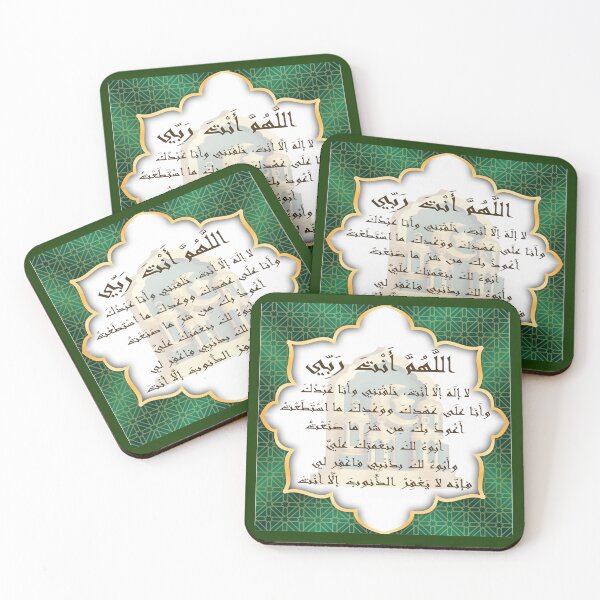 اللَّهُمَّ أَنْتَ رَبِّي
لا إلَهَ إلَّا أنْتَ، خَلَقْتَنِي وأنا عَبْدُكَ
عَلَى عَهْدِكَ ووَعْدِكَ ما اسْتَطَعْتُ
أعُوذُ بكَ مِن شَرِّ ما صَنَعْتُ
اللَّهُمَّ أَنْتَ رَبِّي
لا إلَهَ إلَّا أنْتَ، خَلَقْتَنِي وأنا عَبْدُكَ
وأنا عَلَى عَهْدِكَ ووَعْدِكَ ما اسْتَطَعْتُ
أعُوذُ بكَ مِن شَرِّ ما صَنَعْتُ
أبُوءُ لكَ بنِعْمَتِكَ عَلَيَّ
وأبُوءُ لكَ بذَنْبِي فاغْفِرْ لي
اللَّهُمَّ أَنْتَ رَبِّي
لا إلَهَ إلَّا أنْتَ، خَلَقْتَنِي وأنا عَبْدُكَ
وأنا عَلَى عَهْدِكَ ووَعْدِكَ ما اسْتَطَعْتُ
أعُوذُ بكَ مِن شَرِّ ما صَنَعْتُ
أبُوءُ لكَ بنِعْمَتِكَ عَلَيَّ
وأبُوءُ لكَ بذَنْبِي فاغْفِرْ لي
يَغْفِرُ الذُّنُوبَ إلَّا أنْتَ
اللَّهُمَّ أَنْتَ رَبِّي
لا إلَهَ إلَّا أنْتَ، خَلَقْتَنِي وأنا عَبْدُكَ
وأنا عَلَى عَهْدِكَ ووَعْدِكَ ما اسْتَطَعْتُ
أعُوذُ بكَ مِن شَرِّ ما صَنَعْتُ
أبُوءُ لكَ بنِعْمَتِكَ عَلَيَّ
وأبُوءُ لكَ بذَنْبِي فاغْفِرْ لي
فإنَّه لا يَغْفِرُ الذُّنُوبَ إلَّا أنْتَ